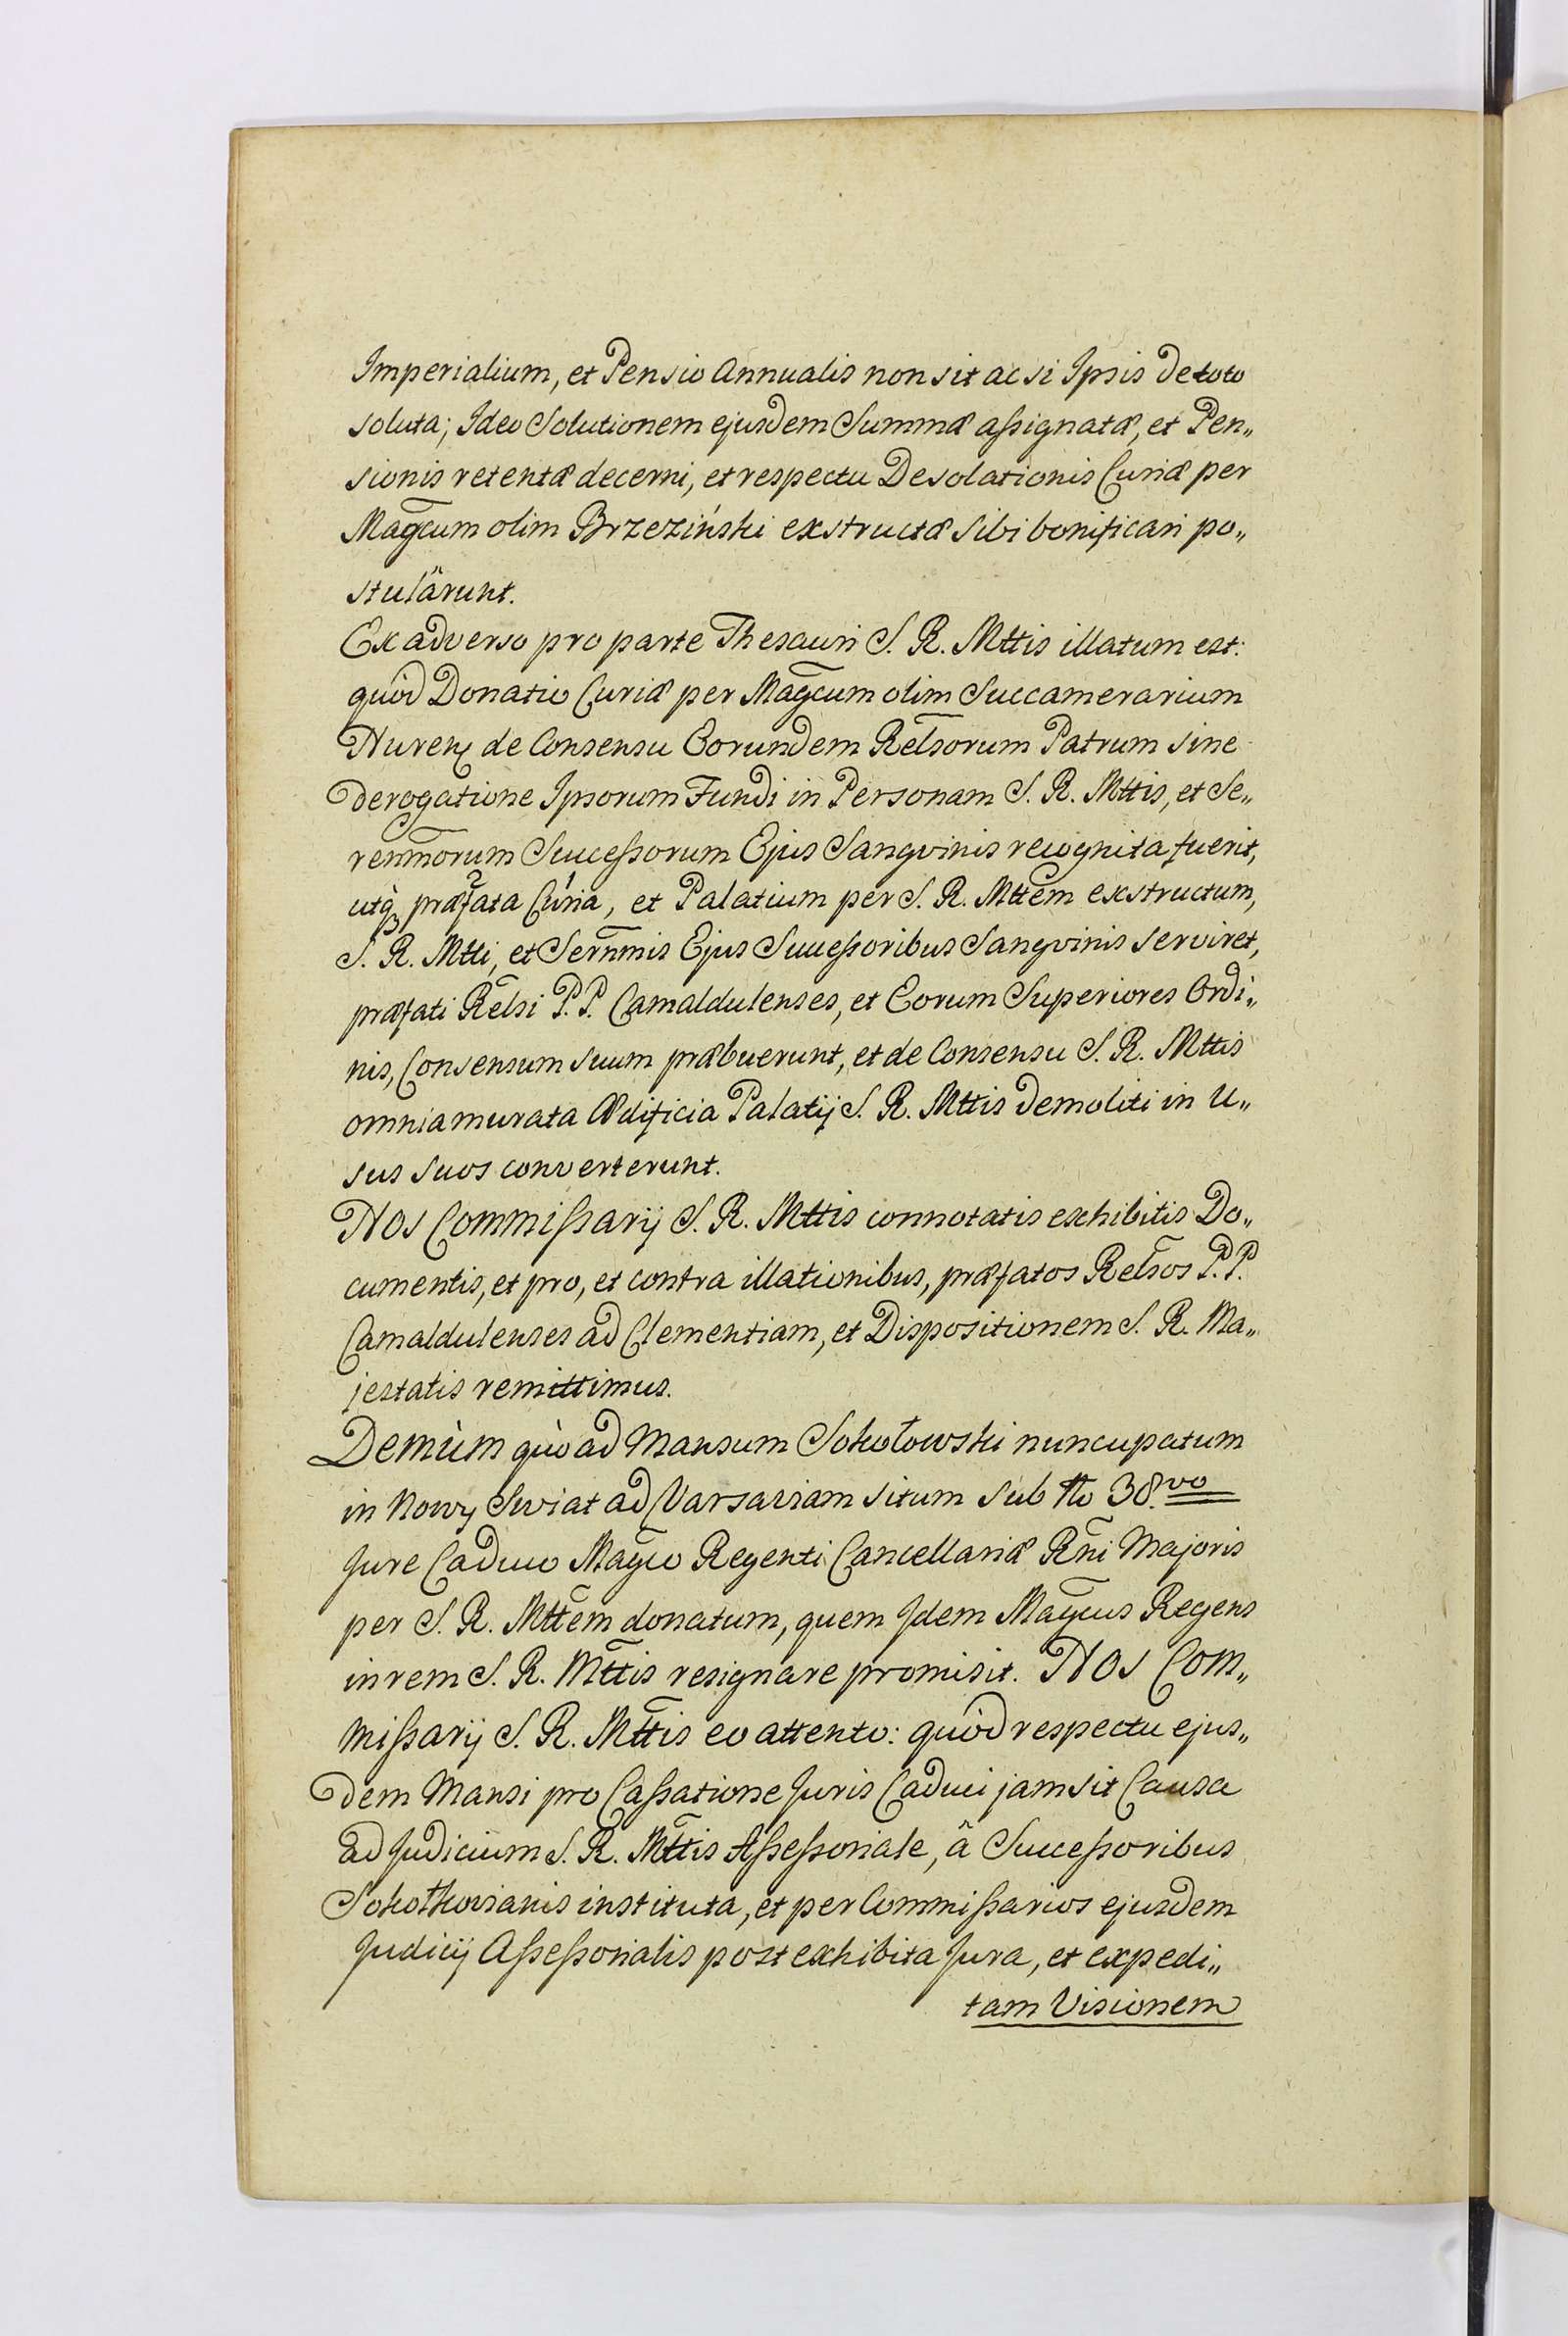 Imperialium, et Pensio Annualis non sit ac si Ipsis de toto
soluta; Ideo Solutionem ejusdem Summæ assignatæ, et Pen„
sionis retentæ decerni, et respectu Desolationis Curiæ per
Magcum olim Brzeziński exstructæ sibi bonificari po„
stulârunt.
Ex adverso pro parte Thesauri S. R. Mttis illatum est:
quòd Donatio Curiæ per Magcum olim Succamerarium
Nuren de Consensu Eorundem Relsorum Patrum sine
derogatione Ipsorum Fundi in Personam S. R. Mttis, et Se„
renmorum Successorum Ejus Sangvinis recognita fuerit,
utq præfata Curia, et Palatium per S. R. Mttem exstructum,
S. R. Mtti, et Sernmis Ejus Successoribus Sangvinis serviret,
præfati Relsi P.P. Camaldulenses, et Eorum Superiores Ordi„
nis, Consensum suum præbuerunt, et de Consensu S. R. Mttis
omnia murata Ædificia Palatij S. R. Mttis demoliti in U„
sus suos converterunt.
Nos Commissarij S. R. Mttis connotatis exhibitis Do„
cumentis, et pro, et contra illationibus, præfatos Relsos P.P.
Camaldulenses ad Clementiam, et Dispositionem S. R. Ma„
jestatis remittimus.
Demùm quò ad Mansum Sokołowski nuncupatum
in Nowy Swiat ad Varsaviam situm sub No 38.vo
Jure Caduco Magco Regenti Cancellariæ Rni Majoris
per S. R. Mttem donatum, quem Idem Magcus Regens
in rem S. R. Mttis resignare promisit. Nos Com„
missarij S. R. Mttis eo attento: quòd respectu ejus„
dem Mansi pro Cassatione Juris Caduci jam sit Causa
ad Judicium S. R. Mttis Assessoriale, â Successoribus
Sokołkovianis instituta, et per Commissarios ejusdem
Judicij Assessorialis post exhibita Jura, et expedi„
tam Visionem